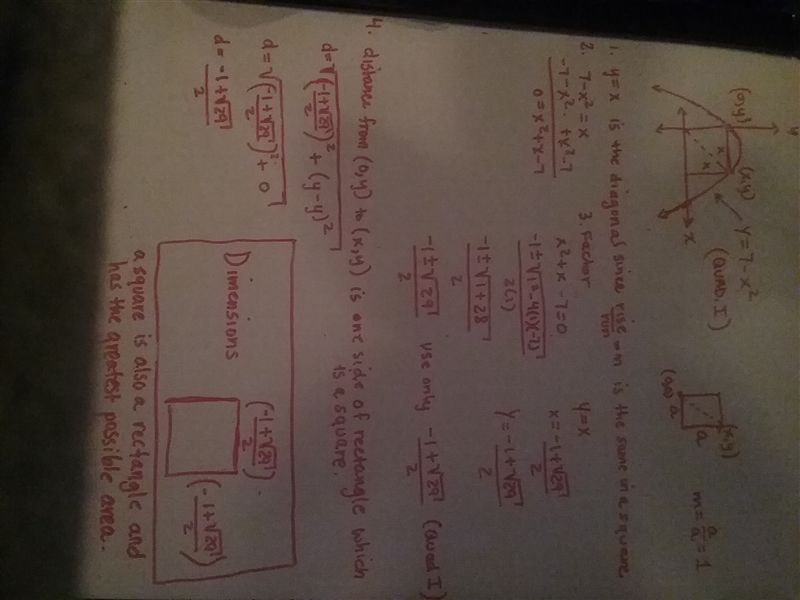 y
(0,y)
(x,y)
x
x
x
y = 7 - x²
(QUAD. I)
(x,y)
a
a
(0,0)
m = a/a = 1
1. y=x is the diagonal since rise/run = m is the same in a square
2. 7-x² = x
-7-x²· +x²-7
0 = x²+x-7
3. Factor
x² + x - 7 = 0
-1 ± √1²-4(1)(-7)
2(1)
-1 ± √1+28
2
-1 ± √29
2
use only -1+√29/2 (Quad I)
y = x
x = -1+√29/2
y = -1+√29/2
4. distance from (0,y) to (x,y) is one side of rectangle which is a square.
d = √(-1+√29/2)² + (y-y)²
d = √(-1+√29/2)² + 0
d = -1+√29/2
Dimensions
(-1+√29/2).
(-1+√29/2)
a square is also a rectangle and
has the greatest possible area.